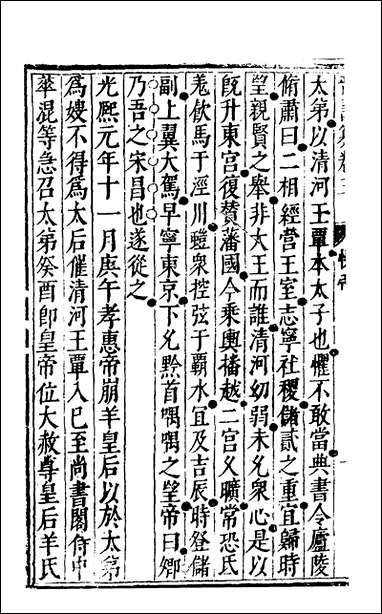 太弟以清河王覃本太子也懼不敢當典書令廬陵
脩肅曰二相經營王室志寧社稷儲貳之重宜歸時
望親賢之舉非大王而誰清河幼弱未允衆心是以
旣升東宮復賛藩國今乘輿播越二宮久曠常恐氏
羌飮馬于涇川螘衆控弦于霸水宜及吉辰時登儲
副上翼大駕早寧東京下允黔首喁喁之望帝曰卿
乃吾之宋昌也遂從之
光熙元年十一月庚午孝惠帝崩羊皇后以於太弟
爲嫂不得爲太后催清河王覃入已至尚書閣侍中
華混等急召太弟癸酉卽皇帝位大赦尊皇后羊氏